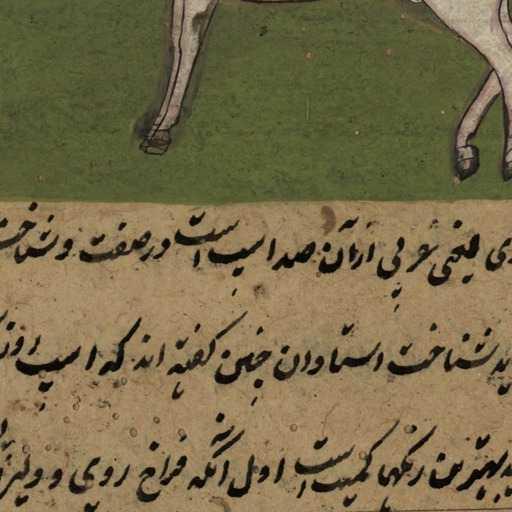 یعنی عربی ازآن صد اسپ است در صفت و شناخت
شناخت استاوان چنین گفته اند که اسپ
بهترین رنگها کمیت است اول آنکه فراخ روی و